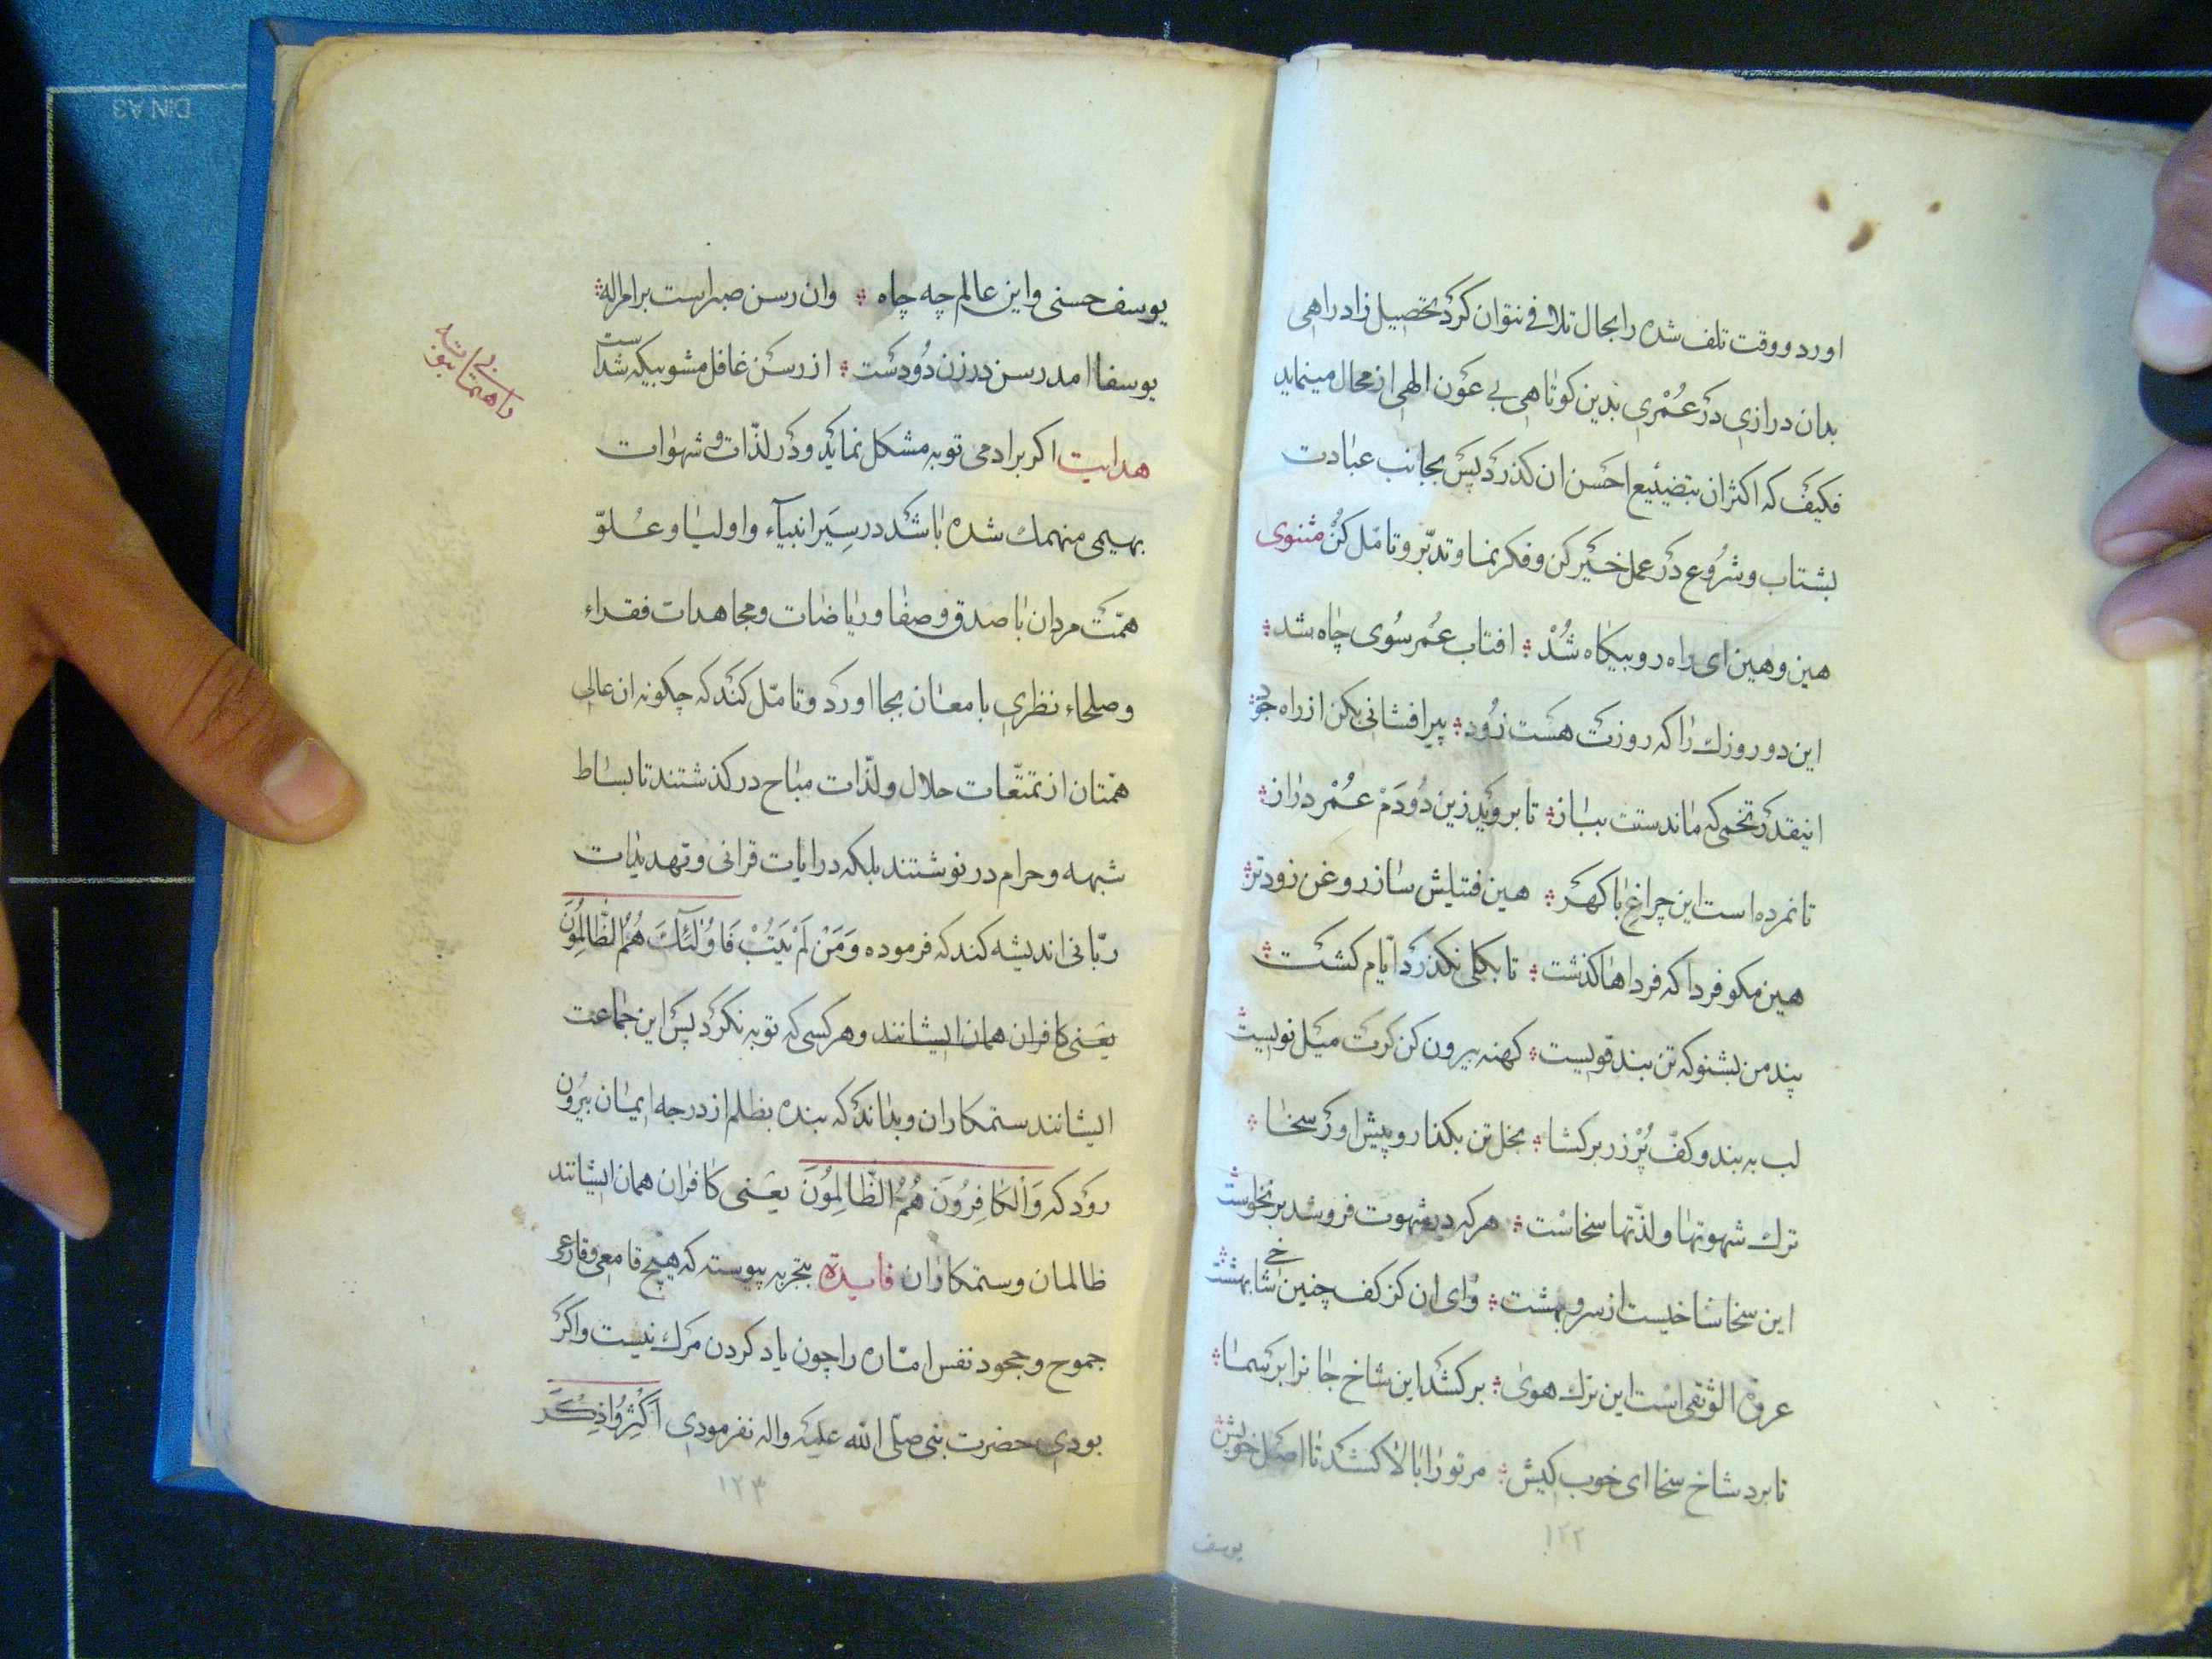 اورد و وقت تلف شده را بجال تلافی نتوان کرد بتحصیل زاد راهی
بدان درازی در عمری بدین کوتاهی بی عون الهی از محال مینماید
فکیف که اکثر ان بتضییع احسن ان کذرد پس بجانب عبادت
بشتاب و شروع در عمل خیر کن و فکر نما و تدبر و تامل کن مثنوی
هین و هین ای راه رو بیکاه شد ؞ افتاب عمر سوی چاه شد ؞
این دو روزك را که روزت هست زود ؞ پیر افشانی بکن از راه جود ؞
اینقدر تخمی که ماندستت بباز ؞ تا بروید زین دو دم عمر دراز ؞
تا نمرده است این چراغ با کهر ؞ هین فتیلش ساز روغن زودتر ؞
هین مکو فردا که فرداها کذشت ؞ تا بکلی نکذرد ایام کشت ؞
پند من بشنو که تن بند قویست ؞ کهنه بیرون کن کرت میل نویست ؞
لب به بند و کف پر زر بر کشا ؞ بخل تن بکذار و پیش اور سخا ؞
ترك شهوتها و لذتها سخاست ؞ هر که در شهوت فرو شد بر نخواست ؞
این سخا شاخیست از سرو بهشت ؞ وای ان کز کف چنین شاخی بهشت ؞
عروة الوثقی است این ترك هوی ؞ بر کشد این شاخ جانرا بر سما ؞
تا برد شاخ سخا ای خوب کیش ؞ مر تو را بالا کشد تا اصل خویش ؞
۱۲۲
یوسف
یوسف حسنی و این عالم چه چاه ؞ وان رسن صبر است بر امر اله ؞
یوسفا امد رسن در زن دو دست ؞ از رسن غافل مشو بیکه شداست
هدایت اکر بر ادمی توبه مشکل نماید و در لذات و شهوات
بهیمی منهمك شده باشد در سیر انبیآء و اولیا و علو
همت مردان با صدق و صفا و ریاضات و مجاهدات فقراء
و صلحاء نظری با معان بجا اورد و تامل کند که چکونه ان عالی
همتان از تمتعات حلال و لذات مباح در کذشتند تا بساط
شبهه و حرام در نوشتند بلکه در ایات قرانی و تهدیدات
ربانی اندیشه کند که فرموده وَمَنْ لَمْ يَتُبْ فَاُولٰئِكَ هُمُ الظَّالِمُونَ
یعنی کافران همان ایشانند و هر کسی که توبه نکرد پس این جماعت
ایشانند ستمکاران و بداند که بنده بظلم از درجه ایمان بیرون
رود که وَالْكَافِرُونَ هُمُ الظَّالِمُونَ یعنی کافران همان ایشانند
ظالمان و ستمکاران فایدة بتجربه پیوسته که هیچ قامعی و قارعی
جموح و جحود نفس اماره را چون یاد کردن مرك نیست و اکر
بودی حضرت نبی صلی الله علیه واله نفرمودی اَكْثِرُوا ذِكْرَ
۱۲۳